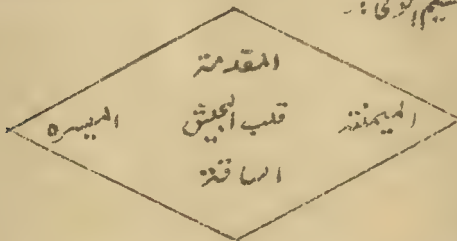 المقدمة
الميمنة قلب الجيش الميسرة
الساقة